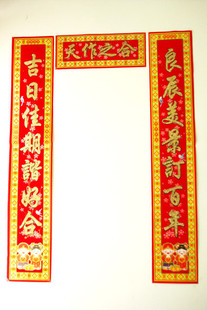 天作之合
良辰美景訂百年
吉日佳期諧好合